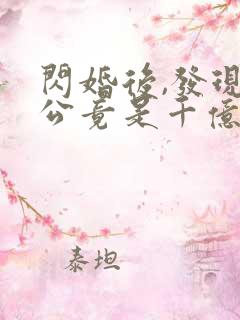 閃婚後,發現
公竟是千億
泰坦